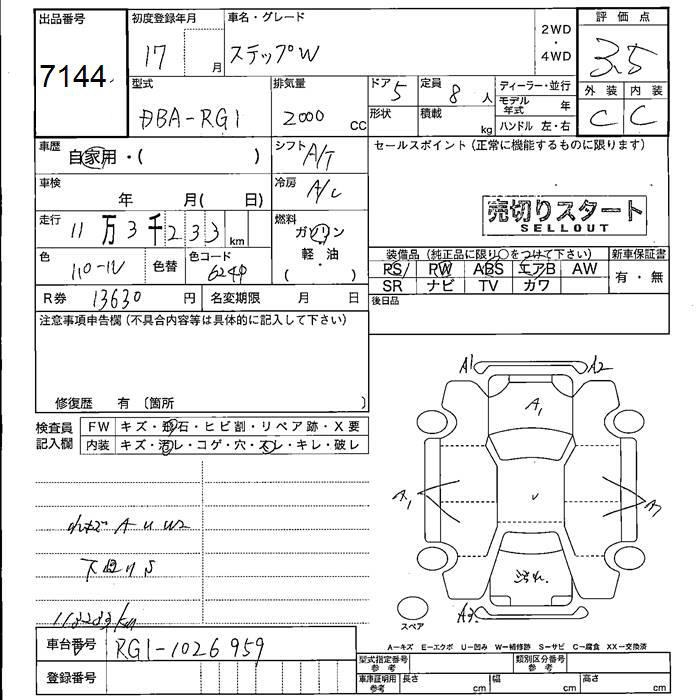 出品番号
7144
初度登録年月
17 月
車名・グレード
ステップW
2WD
・
4WD
評価点
3.5
外装 内装
C C
型式
DBA-RG1
排気量
2000 cc
ドア 5
形状
定員 8 人
積載 kg
ディーラー・並行
モデル年式 年
ハンドル 左・右
車歴
自家用・( )
シフト
A/T
セールスポイント(正常に機能するものに限ります)
車検
年 月( 日)
冷房
A/C
売切りスタート
SELLOUT
走行
11万3千233km
燃料
ガソリン
・
軽・油
( )
色
色替
色コード
装備品(純正品に限り○をつけて下さい)
PS PW ABS エアB AW
SR ナビ TV カワ
新車保証書
有・無
R券 13630 円
名変期限 月 日
後日品
注意事項申告欄(不具合内容等は具体的に記入して下さい)
修復歴 有〔箇所 〕
検査員
記入欄
FW キズ・飛石・ヒビ割・リペア跡・X要
内装 キズ・汚レ・コゲ・穴・スレ・キレ・破レ
A1
A2
A1
A1
スペア
A-キズ E-エクボ U-凹み W-補修跡 S-サビ C-腐食 XX-交換済
車台番号 RG1-1026959
登録番号
型式指定番号
参考
類別区分番号
参考
車庫証明用
参考
長さ cm
幅 cm
高さ cm